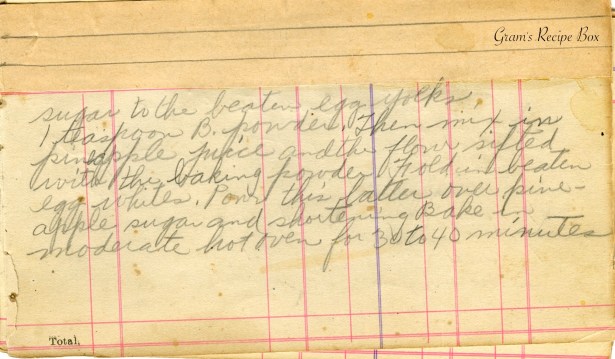 Gram's Recipe Box
sugar to the beaten egg yolks,
1 teaspoon B. powder. Then mix in
pineapple juice and the flour sifted
with the baking powder. Fold in beaten
egg whites. Pour this batter over pine-
apple sugar and shortening Bake in
moderate hot oven for 30 to 40 minutes
Total,